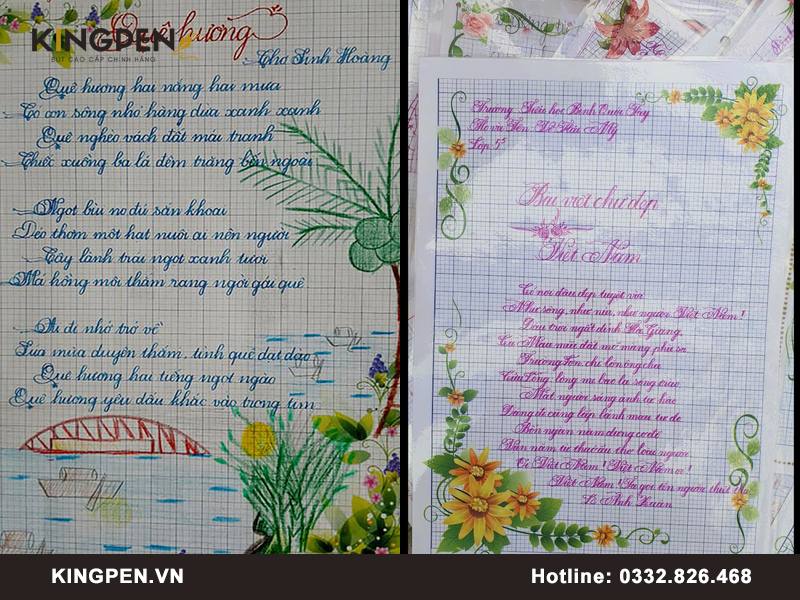 KINGPEN
BÚT CAO CẤP CHÍNH HÃNG
Quê hương
Thơ Sinh Hoàng
Quê hương hai nắng hai mưa
Có con sông nhỏ hàng dừa xanh xanh
Quê nghèo vách đất mái tranh
Chiếc xuồng ba lá đêm trăng bến ngoài
Ngọt bùi no đủ sắn khoai
Dẻo thơm một hạt nuôi ai nên người
Cây lành trái ngọt xanh tươi
Má hồng môi thắm rạng ngời gái quê
Ai đi nhớ trở về
Lúa mùa duyên thắm, tình quê dạt dào
Quê hương hai tiếng ngọt ngào
Quê hương yêu dấu khắc vào trong tim
Trường Tiểu học Bình Qưới Tây
Họ và tên: Mỹ
Lớp 5
Bài viết chữ đẹp
Việt Nam
Có nơi đâu đẹp tuyệt vời
Như sông, như núi, như người Việt Nam!
Đầu trời ngất đỉnh Hà Giang
Cà Mau mũi đất mỡ màng phù sa
Trường Sơn chí lớn ông cha
Cửu Long lòng mẹ bao la sóng trào
Mặt người sáng ánh tự hào
Dáng đi cũng lấp lánh màu tự do
Bốn nghìn năm dựng cơ đồ
Vạn năm từ thuở ấu thơ loài người
Ơi Việt Nam! Việt Nam ơi!
Việt Nam! Ta gọi tên người thiết tha
Lê Anh Xuân
KINGPEN.VN
Hotline: 0332.826.468